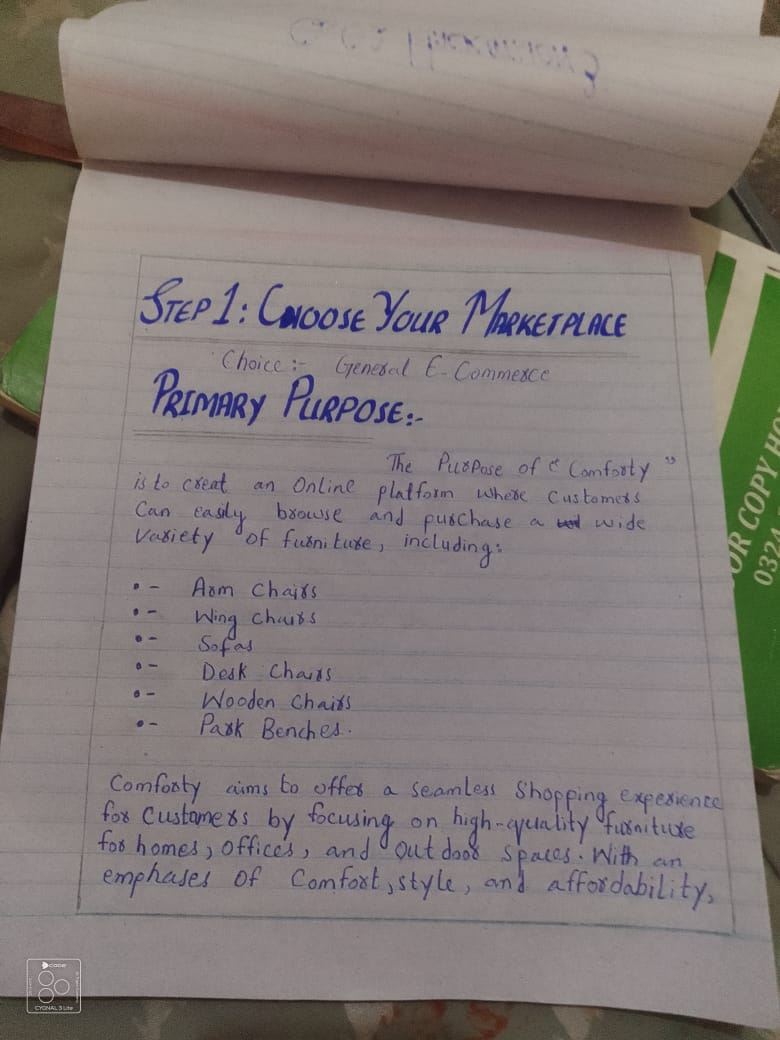 STEP 1: CHOOSE YOUR MARKETPLACE
Choice:- General E-Commerce
PRIMARY PURPOSE:-
The Purpose of "Comforty"
is to creat an Online platform where Customers
Can easily browse and purchase a wide
Variety of furniture, including:
•- Arm Chairs
•- Wing Chairs
•- Sofas
•- Desk Chairs
•- Wooden Chairs
•- Park Benches.
Comforty aims to offer a seamless Shopping experience
for Customers by focusing on high-quality furniture
for homes, offices, and outdoor spaces. With an
emphases of Comfort, style, and affordability,
OR COPY HO
0324
CODE
CYGNAL 3 Lite